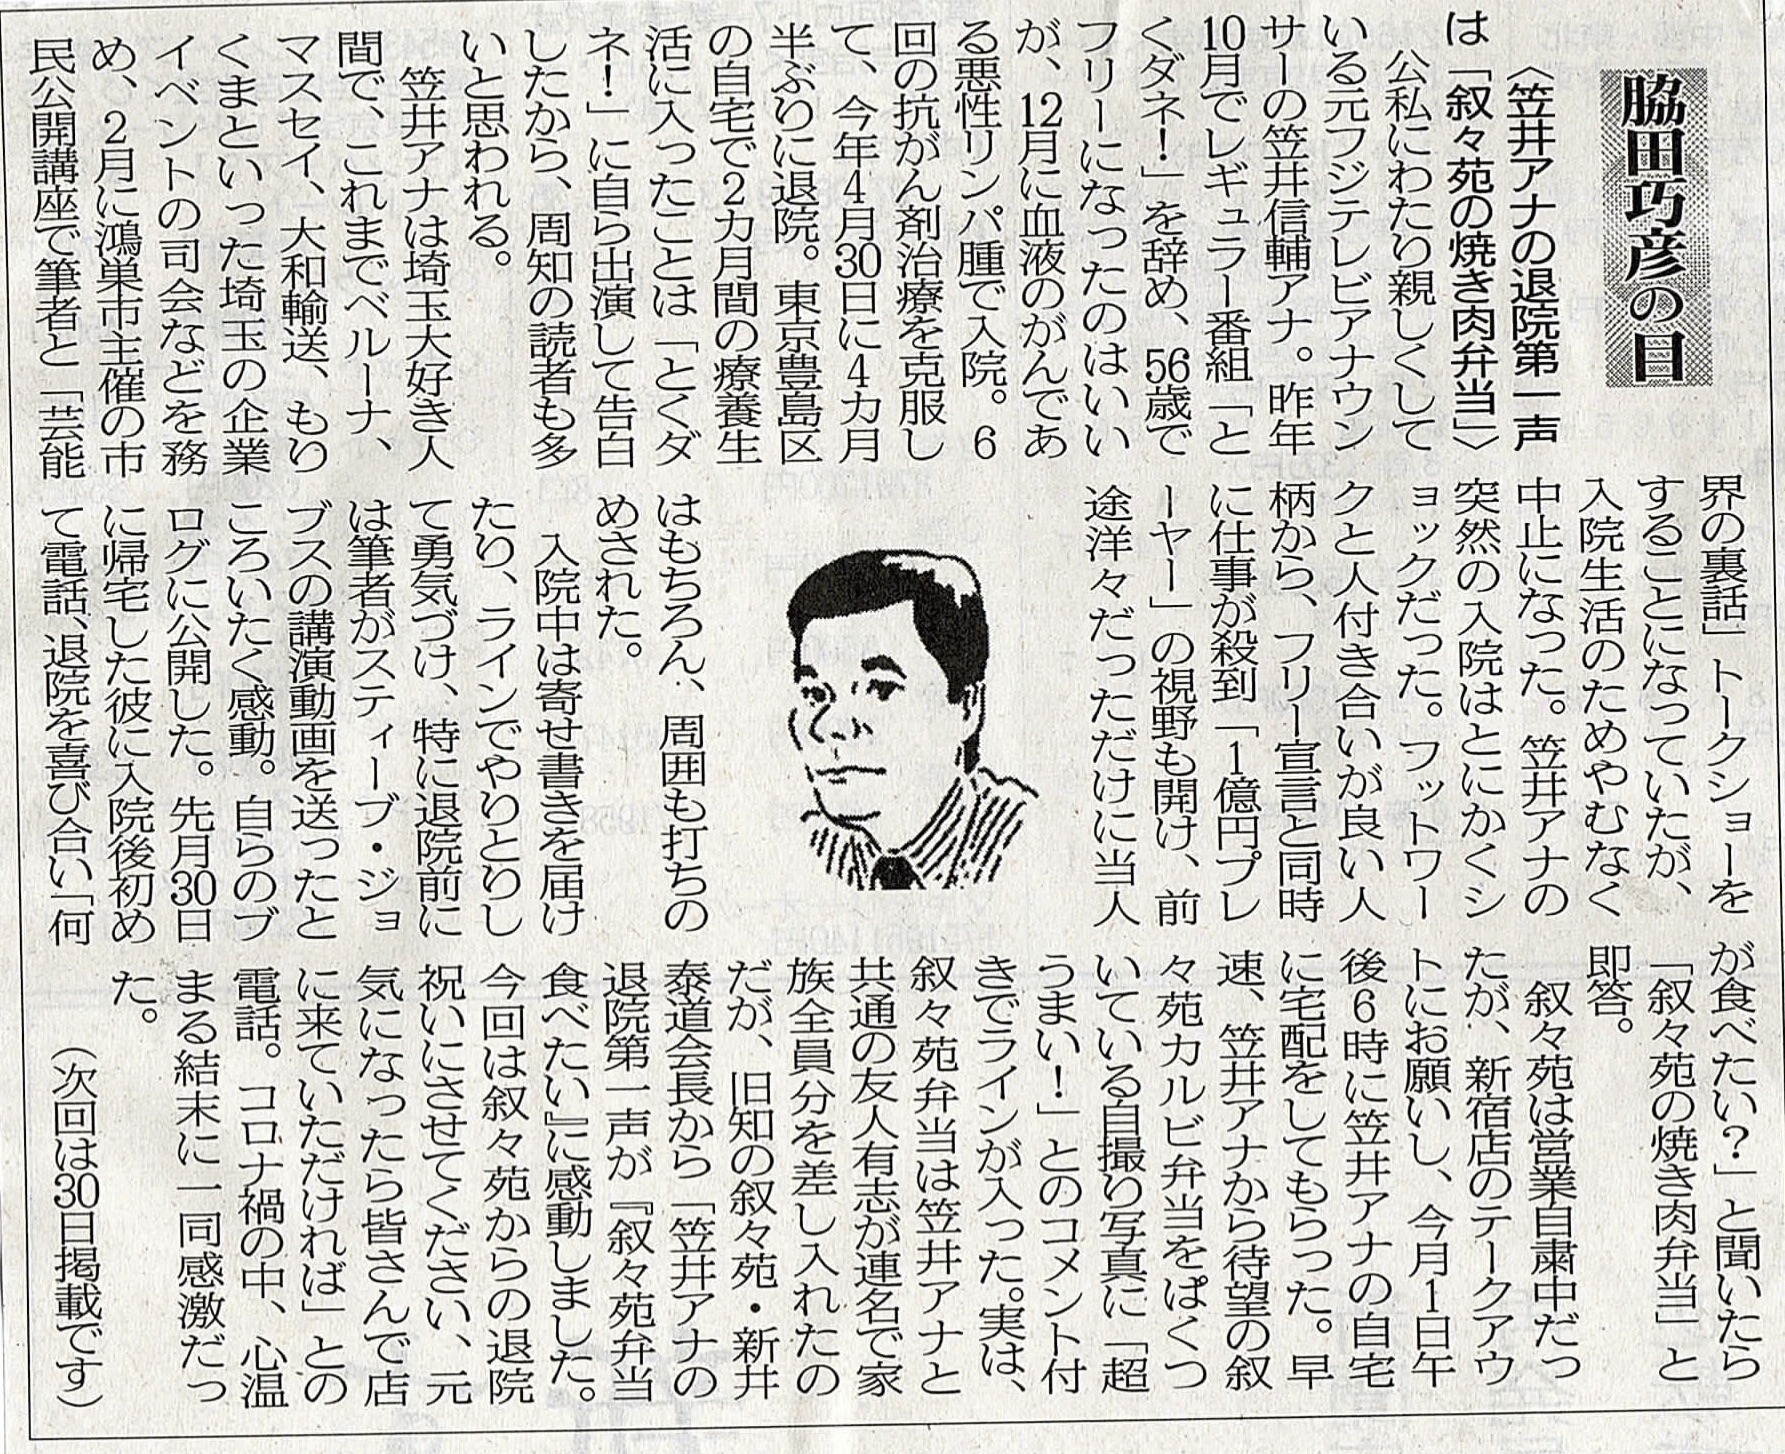 脇田巧彦の目
〈笠井アナの退院第一声
は「叙々苑の焼き肉弁当」〉
公私にわたり親しくして
いる元フジテレビアナウン
サーの笠井信輔アナ。昨年
10月でレギュラー番組「と
くダネ!」を辞め、56歳で
フリーになったのはいい
が、12月に血液のがんであ
る悪性リンパ腫で入院。6
回の抗がん剤治療を克服し
て、今年4月30日に4カ月
半ぶりに退院。東京豊島区
の自宅で2カ月間の療養生
活に入ったことは「とくダ
ネ!」に自ら出演して告白
したから、周知の読者も多
いと思われる。
笠井アナは埼玉大好き人
間で、これまでベルーナ、
マスセイ、大和輸送、もり
くまといった埼玉の企業
イベントの司会などを務
め、2月に鴻巣市主催の市
民公開講座で筆者と「芸能
界の裏話」トークショーを
することになっていたが、
入院生活のためやむなく
中止になった。笠井アナの
突然の入院はとにかくシ
ョックだった。フットワー
クと人付き合いが良い人
柄から、フリー宣言と同時
に仕事が殺到「1億円プレ
ーヤー」の視野も開け、前
途洋々だっただけに当人
はもちろん、周囲も打ちの
めされた。
入院中は寄せ書きを届け
たり、ラインでやりとりし
て勇気づけ、特に退院前に
は筆者がスティーブ・ジョ
ブスの講演動画を送ったと
ころいたく感動。自らのブ
ログに公開した。先月30日
に帰宅した彼に入院後初め
て電話、退院を喜び合い「何
が食べたい?」と聞いたら
「叙々苑の焼き肉弁当」と
即答。
叙々苑は営業自粛中だっ
たが、新宿店のテークアウ
トにお願いし、今月1日午
後6時に笠井アナの自宅
に宅配をしてもらった。早
速、笠井アナから待望の叙
々苑カルビ弁当をぱくつ
いている自撮り写真に「超
うまい!」とのコメント付
きでラインが入った。実は、
叙々苑弁当は笠井アナと
共通の友人有志が連名で家
族全員分を差し入れたの
だが、旧知の叙々苑・新井
泰道会長から「笠井アナの
退院第一声が『叙々苑弁当
食べたい』に感動しました。
今回は叙々苑からの退院
祝いにさせてください、元
気になったら皆さんで店
に来ていただければ」との
電話。コロナ禍の中、心温
まる結末に一同感激だっ
た。
(次回は30日掲載です)